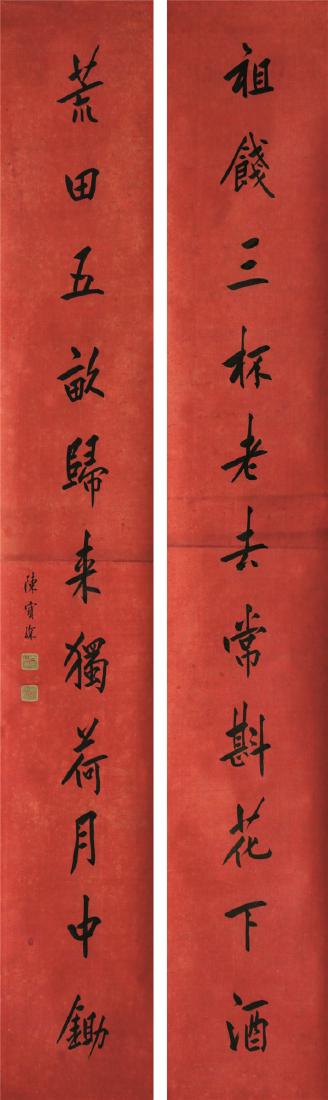 祖餞三杯老去常斟花下酒
荒田五畝歸来獨荷月中鋤
陳寶琛